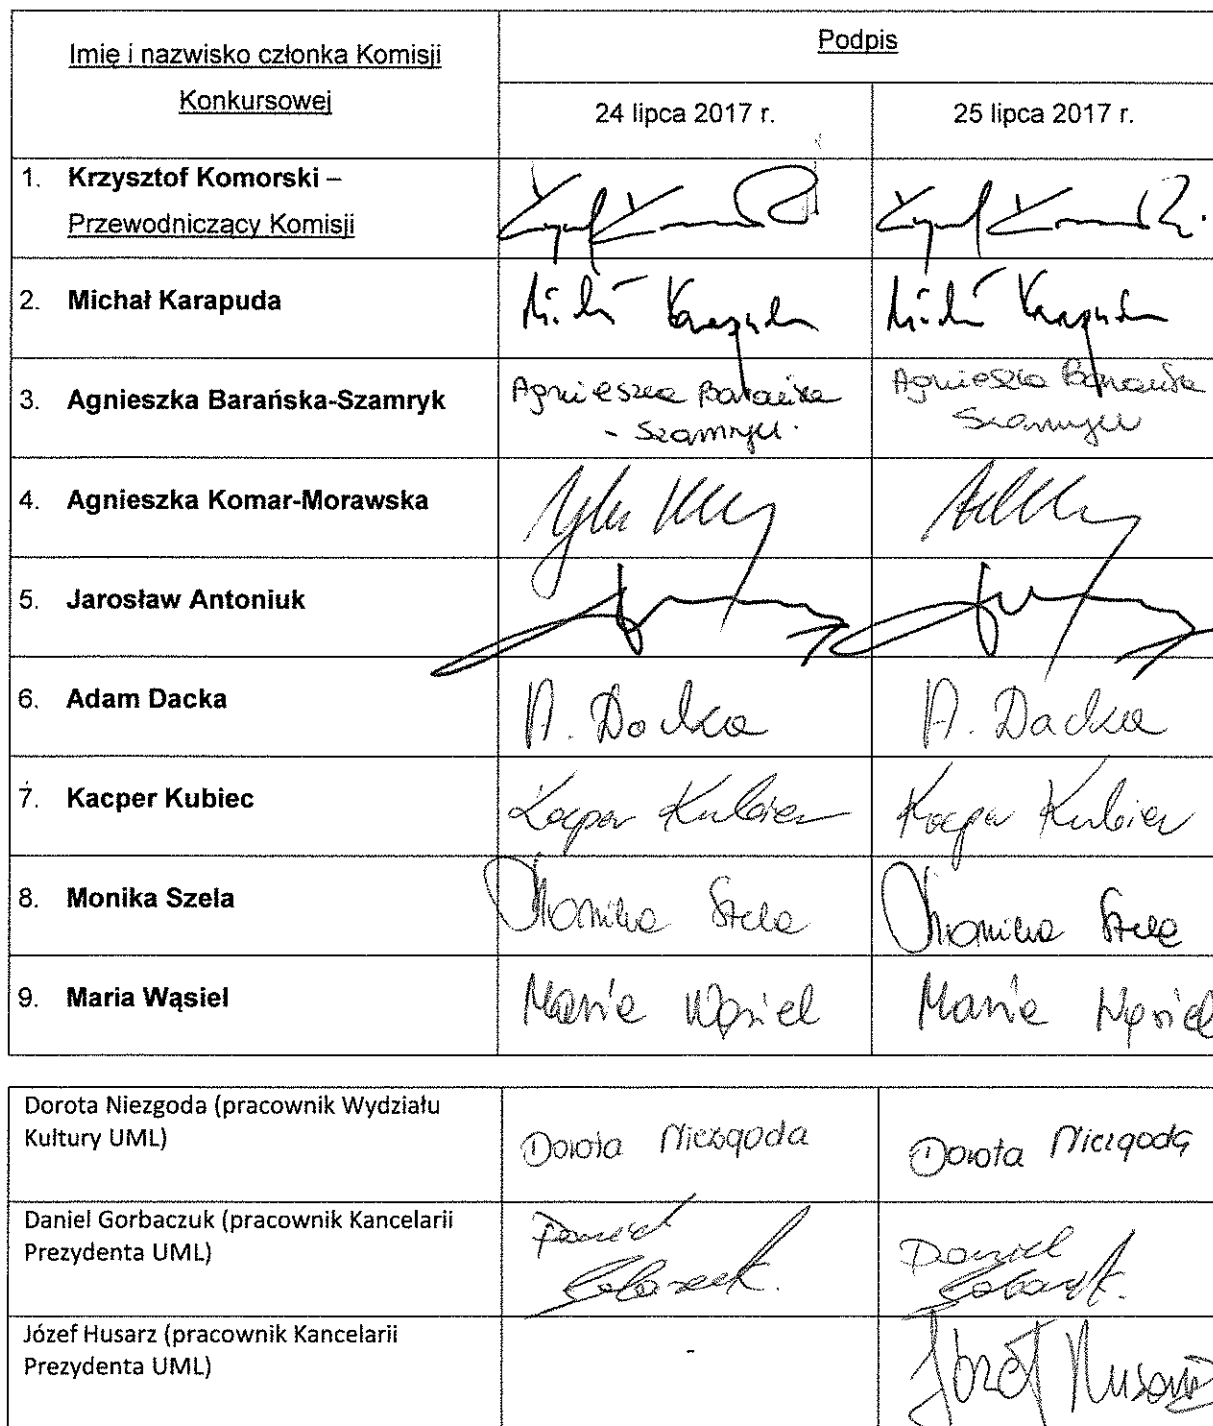 Imię i nazwisko członka Komisji
Konkursowej
Podpis
24 lipca 2017 r.
25 lipca 2017 r.
1. Krzysztof Komorski –
Przewodniczący Komisji
2. Michał Karapuda
3. Agnieszka Barańska-Szamryk
Agnieszka Barańska
- Szamryk
Agnieszka Barańska
Szamryk
4. Agnieszka Komar-Morawska
5. Jarosław Antoniuk
6. Adam Dacka
A. Dacka
A. Dacka
7. Kacper Kubiec
Kacper Kubiec
Kacper Kubiec
8. Monika Szela
Monika Szela
Monika Szela
9. Maria Wąsiel
Maria Wąsiel
Maria Wąsiel
Dorota Niezgoda (pracownik Wydziału
Kultury UML)
Dorota Niezgoda
Dorota Niezgoda
Daniel Gorbaczuk (pracownik Kancelarii
Prezydenta UML)
Daniel
Daniel
Józef Husarz (pracownik Kancelarii
Prezydenta UML)
-
Józef Husarz